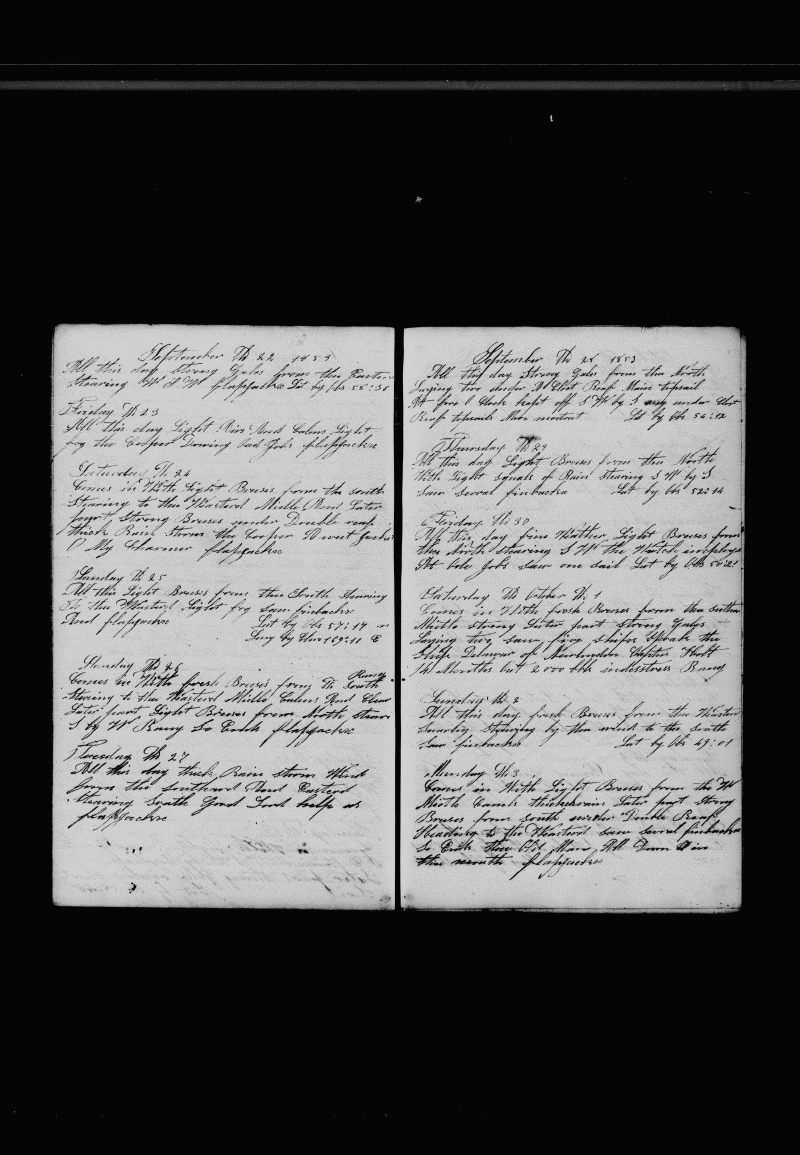 September Th 22 1853
All this day Strong Gales from the Easterd
Stearing W S W flapjacks Lat by Obs 58:38
Friday Th 23
All this day Light Airs And Calms Light
fog the Cooper Dowing Odd Jobs flapjacks
Saturday Th 24
Comes in With Light Breses from the South
Stearing to the Westerd Midle And Later
part Strong Breses under Double reaf
thick Rain Storm the Cooper
O My Charmer flapjacks
Sunday Th 25
All this Light Breses from the South Stearing
To the Westerd Light fog Saw finbacks
And flapjacks Lat by Obs 57:14
Long by Chro 169:11 E
Monday Th 26
Comes in With fresh Breses from the South
Stearing to the Westerd Midle Calms And Clear
Later part Light Breses from North Stearing
S by W Rainy So Ends flapjacks
Tuesday Th 27
All this day thick Rain storm Wind
from the Southard And Easterd
Stearing South Good Lord help us
flapjacks
September Th 28 1853
All this day Strong Gales from the North
Laying two under A Clost Reaf Main topsail
At five O Clock kept off S W by S under Clost
Reaf topsails Lat by Obs 54:12
Thursday Th 29
All this day Light Breses from the North
With Light Squals of Rain Stearing S W by S
Saw Several finbacks Lat by Obs 52:14
Friday Th 30
All this day fine Weather Light Breses from
the North Stearing S W the Watch imployd
At Odd Jobs Saw one Sail Lat by Obs 50:21
Saturday Th October Th 1
Comes in With fresh Breses from the Southerd
Midle strong Later part strong Gales
Laying two Saw five Ships Spoak the
Ship Delawar of Newlondon Capten
Months out 2000 bbls Rainy
Sunday Th 2
All this day fresh Breses from the Westerd
Stearing by the wind to the South
Saw finbacks Lat by Obs 49:01
Monday Th 3
Comes in With Light Breses from the W
Midle Calm thick rain Later part Strong
Breses from South under Double Reafs
Heading to the Westerd Saw several finbacks
So Ends the Old Man All Down in
the mouth flapjacks